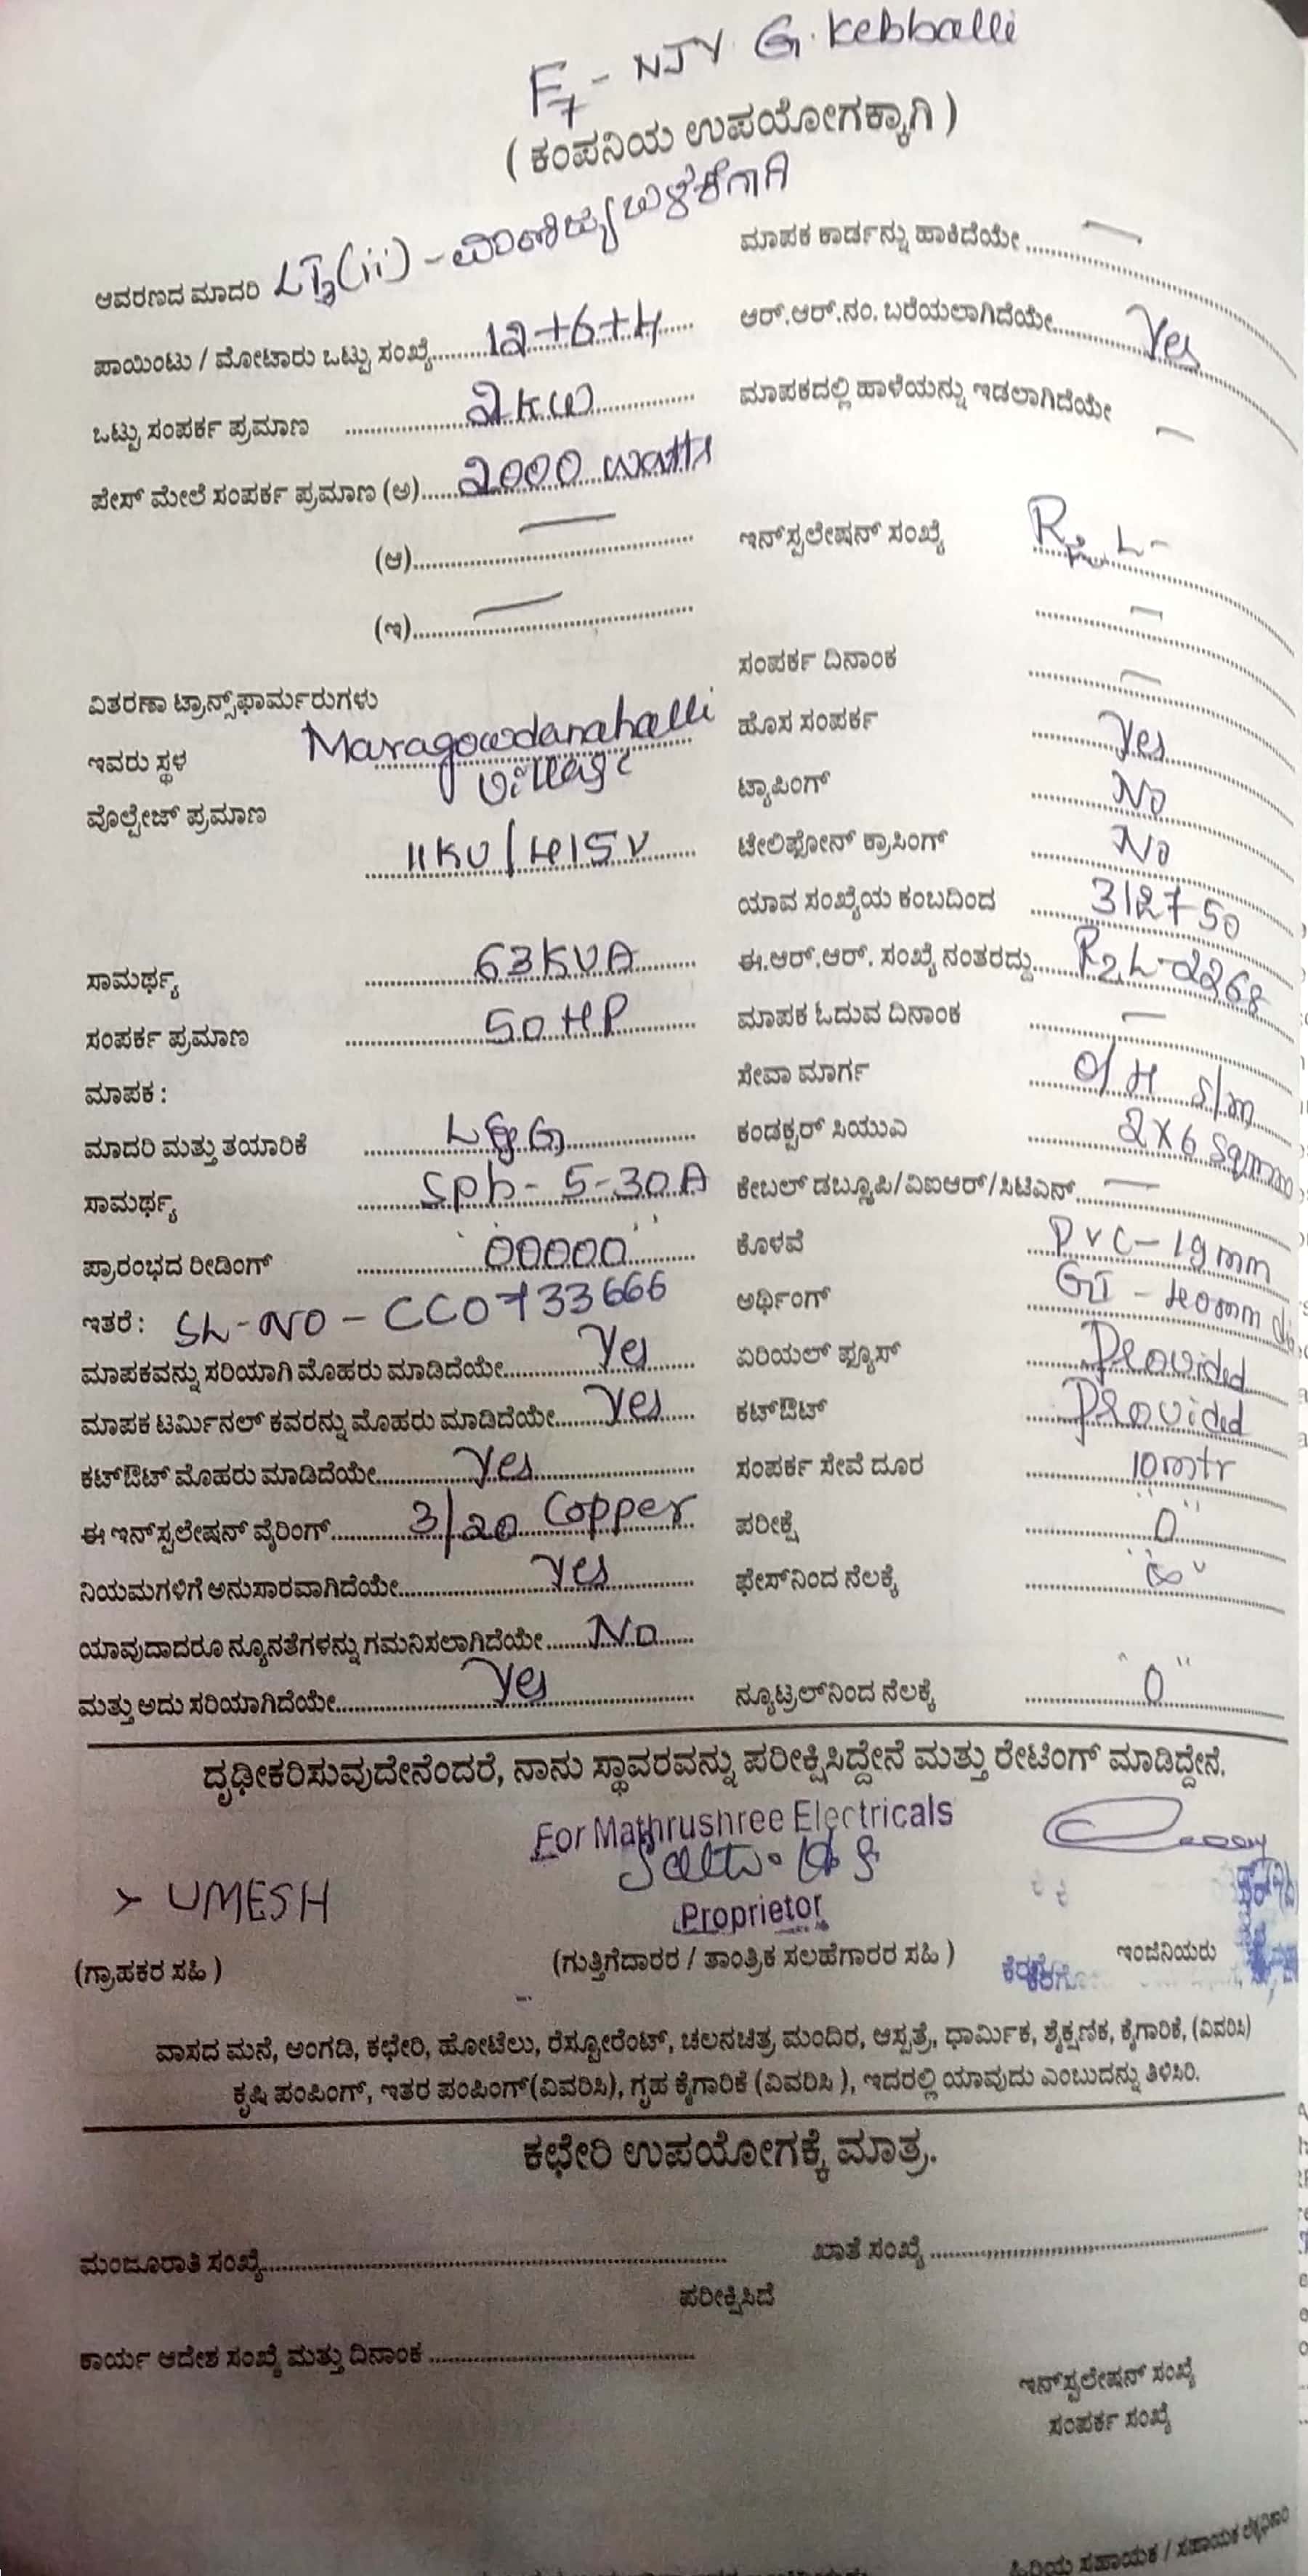 F7 - NJY G. Kebballi
( ಕಂಪನಿಯ ಉಪಯೋಗಕ್ಕಾಗಿ )
ಆವರಣದ ಮಾದರಿ LT3(ii) - ವಾಣಿಜ್ಯ ಬಳಕೆಗಾಗಿ
ಮಾಪಕ ಕಾರ್ಡನ್ನು ಹಾಕಿದೆಯೇ ........ —
ಪಾಯಿಂಟು / ಮೋಟಾರು ಒಟ್ಟು ಸಂಖ್ಯೆ........ 12+6+4
ಆರ್.ಆರ್.ನಂ. ಬರೆಯಲಾಗಿದೆಯೇ........ Yes
ಒಟ್ಟು ಸಂಪರ್ಕ ಪ್ರಮಾಣ ........ 2kw
ಮಾಪಕದಲ್ಲಿ ಹಾಳೆಯನ್ನು ಇಡಲಾಗಿದೆಯೇ —
ಪೇಸ್ ಮೇಲೆ ಸಂಪರ್ಕ ಪ್ರಮಾಣ (ಅ)........ 2000 watts
(ಆ)........ —
ಇನ್‌ಸ್ಟಲೇಷನ್ ಸಂಖ್ಯೆ
(ಇ)........ —
ಸಂಪರ್ಕ ದಿನಾಂಕ ........ —
ವಿತರಣಾ ಟ್ರಾನ್ಸ್‌ಫಾರ್ಮರುಗಳು
ಇವರು ಸ್ಥಳ Maragowdanahalli
village
ಹೊಸ ಸಂಪರ್ಕ ........ Yes
ಟ್ಯಾಪಿಂಗ್ ........ No
ವೊಲ್ಟೇಜ್ ಪ್ರಮಾಣ
11KV/415V
ಟೇಲಿಫೋನ್ ಕ್ರಾಸಿಂಗ್ ........ No
ಯಾವ ಸಂಖ್ಯೆಯ ಕಂಬದಿಂದ ........ 312750
ಸಾಮರ್ಥ್ಯ ........ 63KVA
ಈ.ಆರ್.ಆರ್. ಸಂಖ್ಯೆ ನಂತರದ್ದು........ R2L-2268
ಸಂಪರ್ಕ ಪ್ರಮಾಣ ........ 50 HP
ಮಾಪಕ ಓದುವ ದಿನಾಂಕ ........ —
ಮಾಪಕ :
ಸೇವಾ ಮಾರ್ಗ ........ O/H S/m
ಮಾದರಿ ಮತ್ತು ತಯಾರಿಕೆ ........ L&G
ಕಂಡಕ್ಟರ್ ಸಿಯುಎ ........ 2x6 sqmm
ಸಾಮರ್ಥ್ಯ ........ Sph- 5-30A
ಕೇಬಲ್ ಡಬ್ಲ್ಯೂಪಿ/ವಿಐಆರ್/ಸಿಟಿಎನ್........ —
ಪ್ರಾರಂಭದ ರೀಡಿಂಗ್ ........ "00000"
ಕೊಳವೆ ........ PVC-19mm
ಇತರೆ : SL-NO - CC0733666
ಅರ್ಥಿಂಗ್ ........ GI - 40mm
ಮಾಪಕವನ್ನು ಸರಿಯಾಗಿ ಮೊಹರು ಮಾಡಿದೆಯೇ........ Yes
ಏರಿಯಲ್ ಫ್ಯೂಸ್ ........ Provided
ಮಾಪಕ ಟರ್ಮಿನಲ್ ಕವರನ್ನು ಮೊಹರು ಮಾಡಿದೆಯೇ........ Yes
ಕಟ್‌ಔಟ್ ........ Provided
ಕಟ್‌ಔಟ್ ಮೊಹರು ಮಾಡಿದೆಯೇ........ Yes
ಸಂಪರ್ಕ ಸೇವೆ ದೂರ ........ 10mtr
ಈ ಇನ್‌ಸ್ಟಲೇಷನ್ ವೈರಿಂಗ್........ 3/20 Copper
ಪರೀಕ್ಷೆ ........ "0"
ನಿಯಮಗಳಿಗೆ ಅನುಸಾರವಾಗಿದೆಯೇ........ Yes
ಫೇಸ್‌ನಿಂದ ನೆಲಕ್ಕೆ ........ "∞"
ಯಾವುದಾದರೂ ನ್ಯೂನತೆಗಳನ್ನು ಗಮನಿಸಲಾಗಿದೆಯೇ........ No
ಮತ್ತು ಅದು ಸರಿಯಾಗಿದೆಯೇ........ Yes
ನ್ಯೂಟ್ರಲ್‌ನಿಂದ ನೆಲಕ್ಕೆ ........ "0"
ದೃಢೀಕರಿಸುವುದೇನೆಂದರೆ, ನಾನು ಸ್ಥಾವರವನ್ನು ಪರೀಕ್ಷಿಸಿದ್ದೇನೆ ಮತ್ತು ರೇಟಿಂಗ್ ಮಾಡಿದ್ದೇನೆ.
For Mathrushree Electricals
> UMESH
Proprietor
(ಗ್ರಾಹಕರ ಸಹಿ )
(ಗುತ್ತಿಗೆದಾರರ / ತಾಂತ್ರಿಕ ಸಲಹೆಗಾರರ ಸಹಿ )
ಇಂಜಿನಿಯರು
ವಾಸದ ಮನೆ, ಅಂಗಡಿ, ಕಛೇರಿ, ಹೋಟೆಲು, ರೆಸ್ಟೋರೆಂಟ್, ಚಲನಚಿತ್ರ ಮಂದಿರ, ಆಸ್ಪತ್ರೆ, ಧಾರ್ಮಿಕ, ಶೈಕ್ಷಣಿಕ, ಕೈಗಾರಿಕೆ, (ವಿವರಿಸಿ)
ಕೃಷಿ ಪಂಪಿಂಗ್, ಇತರ ಪಂಪಿಂಗ್(ವಿವರಿಸಿ), ಗೃಹ ಕೈಗಾರಿಕೆ (ವಿವರಿಸಿ ), ಇದರಲ್ಲಿ ಯಾವುದು ಎಂಬುದನ್ನು ತಿಳಿಸಿರಿ.
ಕಛೇರಿ ಉಪಯೋಗಕ್ಕೆ ಮಾತ್ರ.
ಮಂಜೂರಾತಿ ಸಂಖ್ಯೆ........
ಖಾತೆ ಸಂಖ್ಯೆ ........
ಪರೀಕ್ಷಿಸಿದೆ
ಕಾರ್ಯ ಆದೇಶ ಸಂಖ್ಯೆ ಮತ್ತು ದಿನಾಂಕ ........
ಇನ್‌ಸ್ಟಲೇಷನ್ ಸಂಖ್ಯೆ
ಸಂಪರ್ಕ ಸಂಖ್ಯೆ
ಹಿರಿಯ ಸಹಾಯಕ / ಸಹಾಯಕ ಲೆಕ್ಕಾಧಿಕಾರಿ